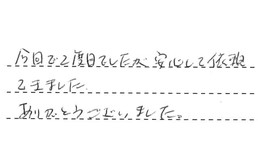 今回で2度目でしたが安心して依頼
できました
ありがとうございました。